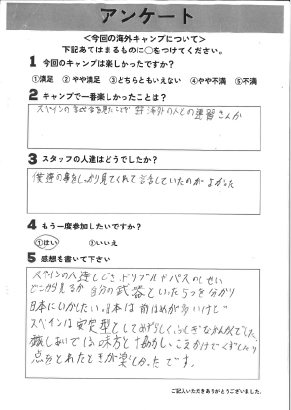 アンケート
＜今回の海外キャンプについて＞
下記あてはまるものに○をつけてください。
1 今回のキャンプは楽しかったですか？
①満足 ②やや満足 ③どちらともいえない ④やや不満 ⑤不満
2 キャンプで一番楽しかったことは？
スペインの 海外の人との練習
3 スタッフの人達はどうでしたか？
僕達の事をしっかり見てくれて していたのがよかった
4 もう一度参加したいですか？
①はい ②いいえ
5 感想を書いて下さい
スペインの人達 ドリブルやパスの
どこから見るか 自分の武器といったらつを分かり
日本にいかしたい。日本は 前は が多いけど
スペインは としてめずらしく、ふしぎなかんかくでした。
しあいでは味方と協力し こえかけ
点をとれたときが楽しかったです。
ご記入いただきありがとうございました。